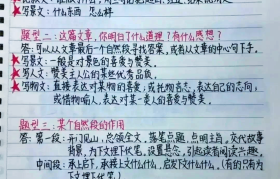 写景文:什么东西 怎么样
题型二:这篇文章,你明白了什么道理?有什么感想?
答:可以从文章最后一个自然段寻找答案,或者从文章的中心句下手。
写景文:一般是对景色的喜爱与赞美。
写人文:赞美主人公的某些优秀品质。
写物文:直接表达对某物的喜爱,或托物言志,表达自己的志向,
或借物喻人,表达对某一类人的喜爱与赞美。
题型三:某个自然段的作用
答:第一段:开门见山,总领全文,统领总题,点明主旨,交代故事
背景,为下文埋下伏笔,设置悬念,引起读者阅读兴趣。
中间段:承上启下,承接上文什么什么,启发下文什么什么。(有时为
下文埋下伏笔)